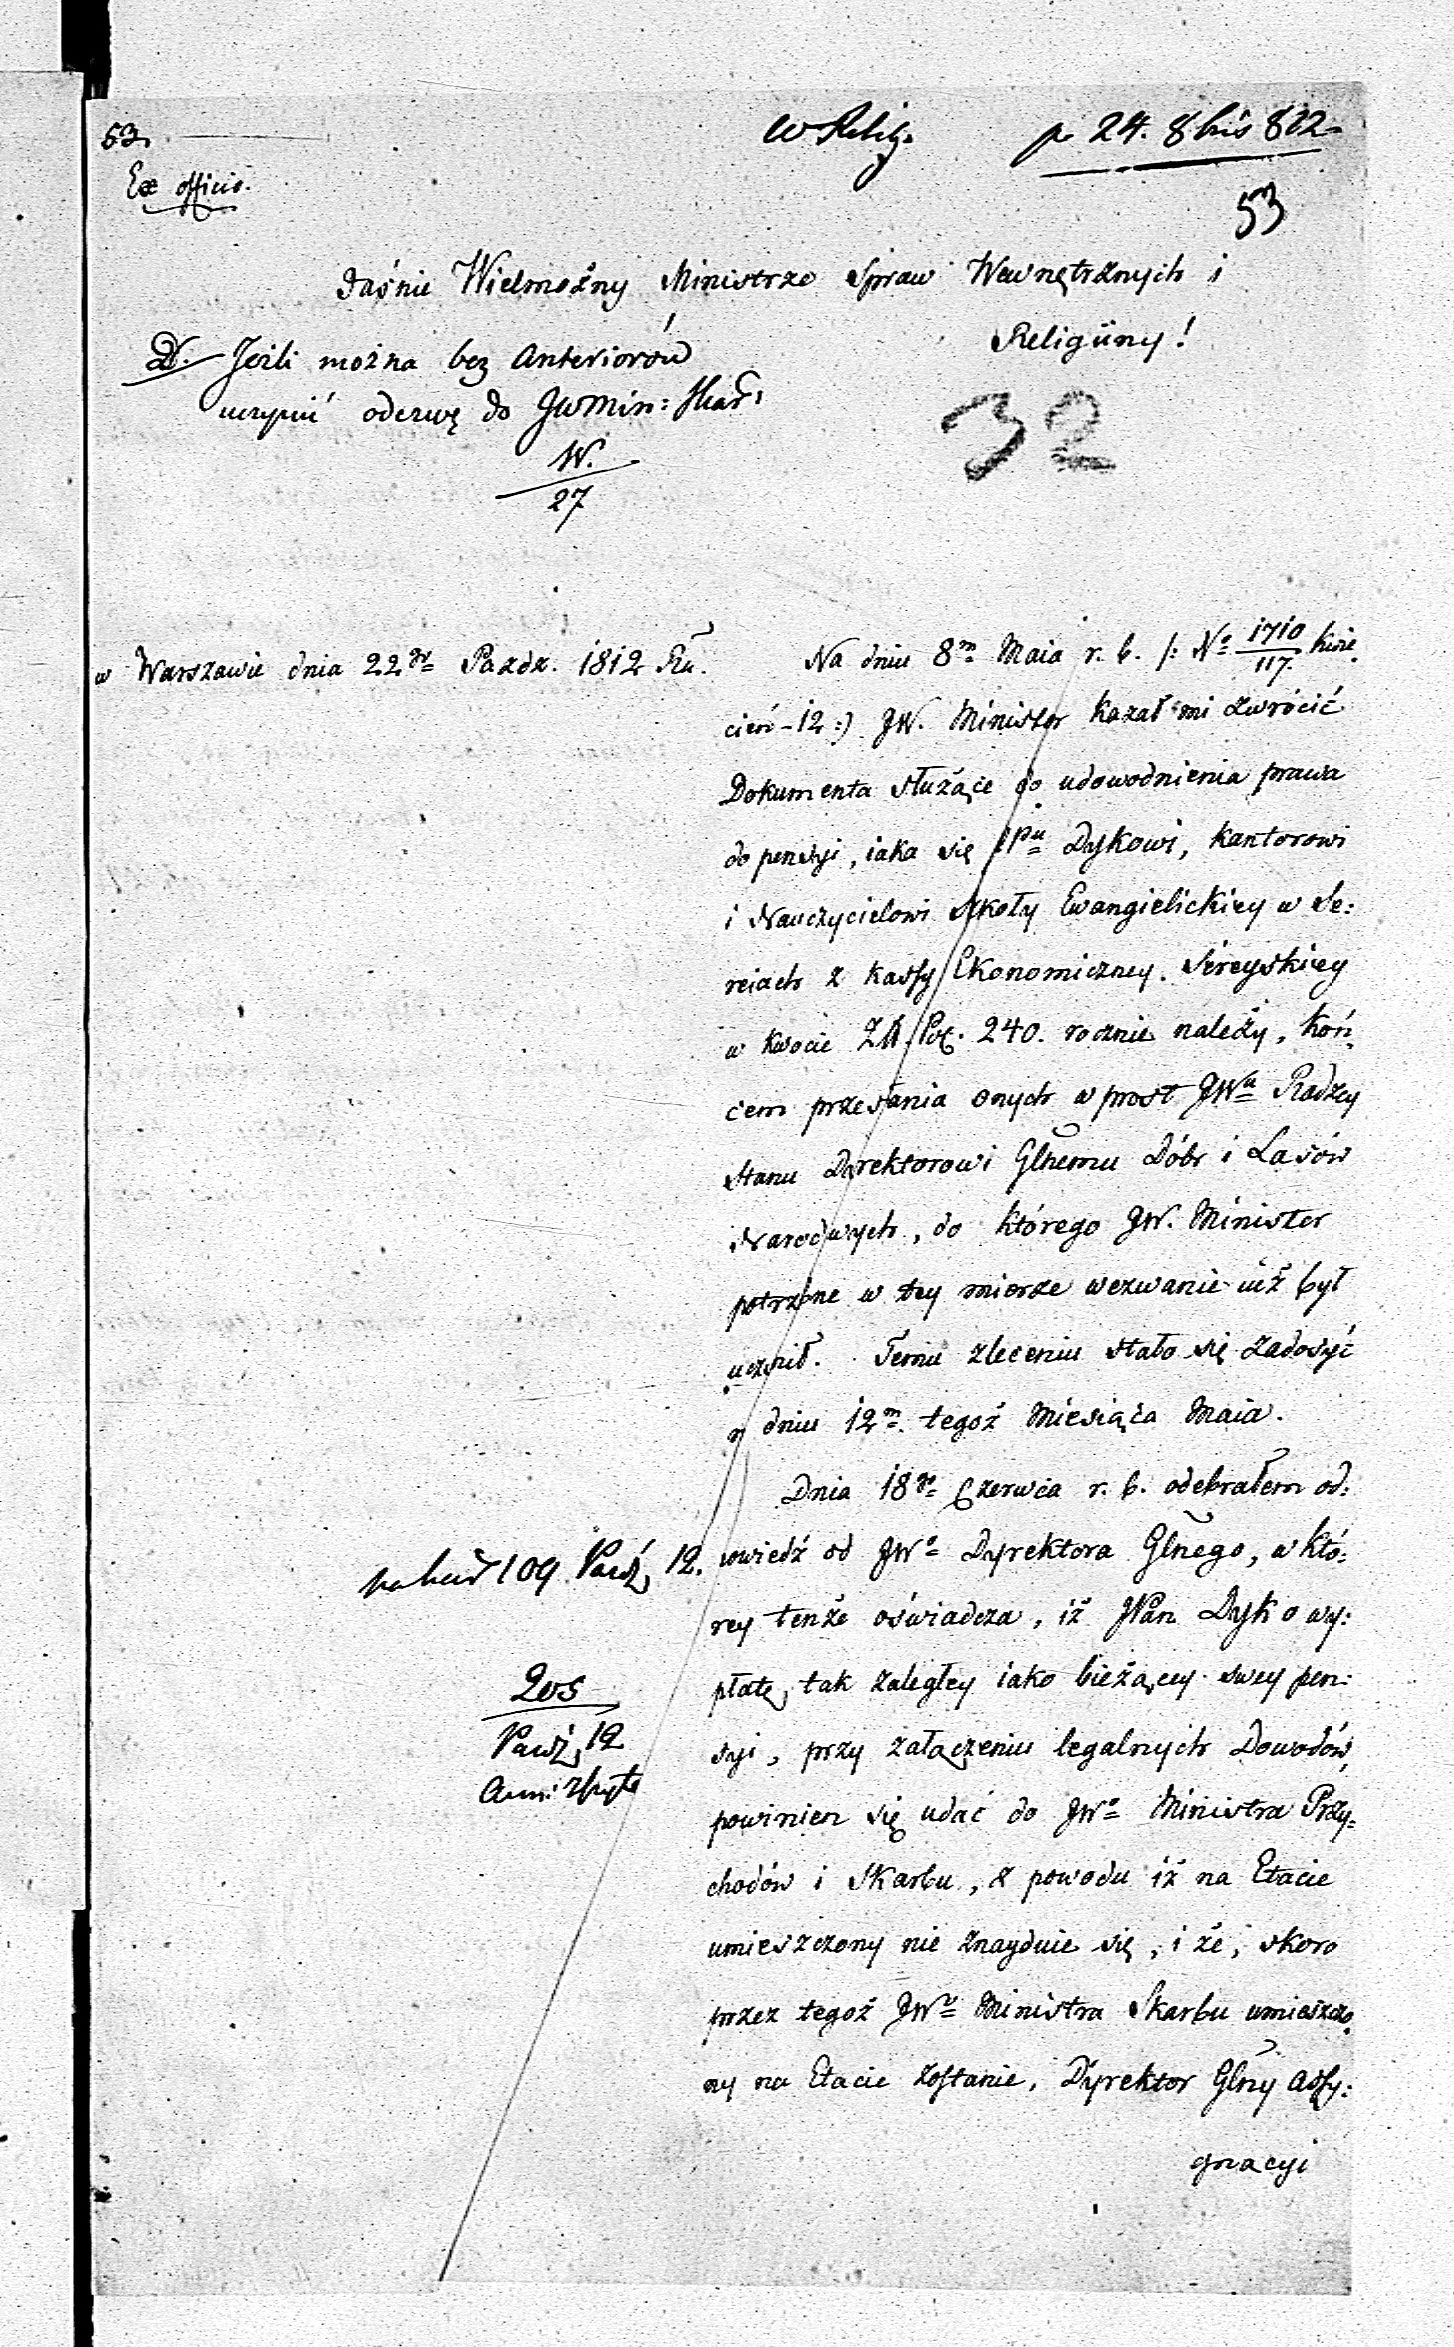 53.
w Relig. p 24. 8bris 812
Ex officio.
53
Jaśnie Wielmożny Ministrze Spraw Wewnętrznych i
Religiiny!
Jeżli można bez Anteriorów
uczynić odezwę do JWMin: Skar:
W.
27
32
w Warszawie dnia 22go Pazdz. 1812 Ru.
Na dniu 8m Maia r. b. /: No 1710/117 Kwie
cień - 12 :) JW. Minister kazał mi zwrócić
Dokumenta służące do udowodnienia prawa
do pensyi, iaka się JPu Dykowi, kantorowi
i Nauczycielowi Szkoły Ewangielickiey w Se:
reiach z kassy Ekonomiczney Sereyskiey
w kwocie Zł. Pol. 240. rocznie należy, koń:
cem przesłania onych w prost JWu Radzcy
Stanu Dyrektorowi Glnemu Dóbr i Lasów
Narodwych, do którego JW. Minister
potrzbne w tey mierze wezwanie iuż był
uczynił. Temu zleceniu stało się zadosyć
w dniu 12m tegoż Miesiąca Maia.
Dnia 18go Czerwca r. b. odebrałem od:
powiedź od JWo Dyrektora Glnego, w któ:
rey tenże oświadcza, iż JPan Dyk o wy:
płatę, tak zaległey iako bieżącey swey pen:
syi, przy załączeniu legalnych Dowodów,
powinien się udać do JWo Ministra Przy:
chodów i Skarbu, z powodu iż na Etacie
umieszczony nie znayduie się, i że, skoro
przez tegoż JWo Ministra Skarbu umieszczo
ny na Etacie zostanie, Dyrektor Glny assy:
gnacyi
109 Paźd, 12.
205
Paźd, 12